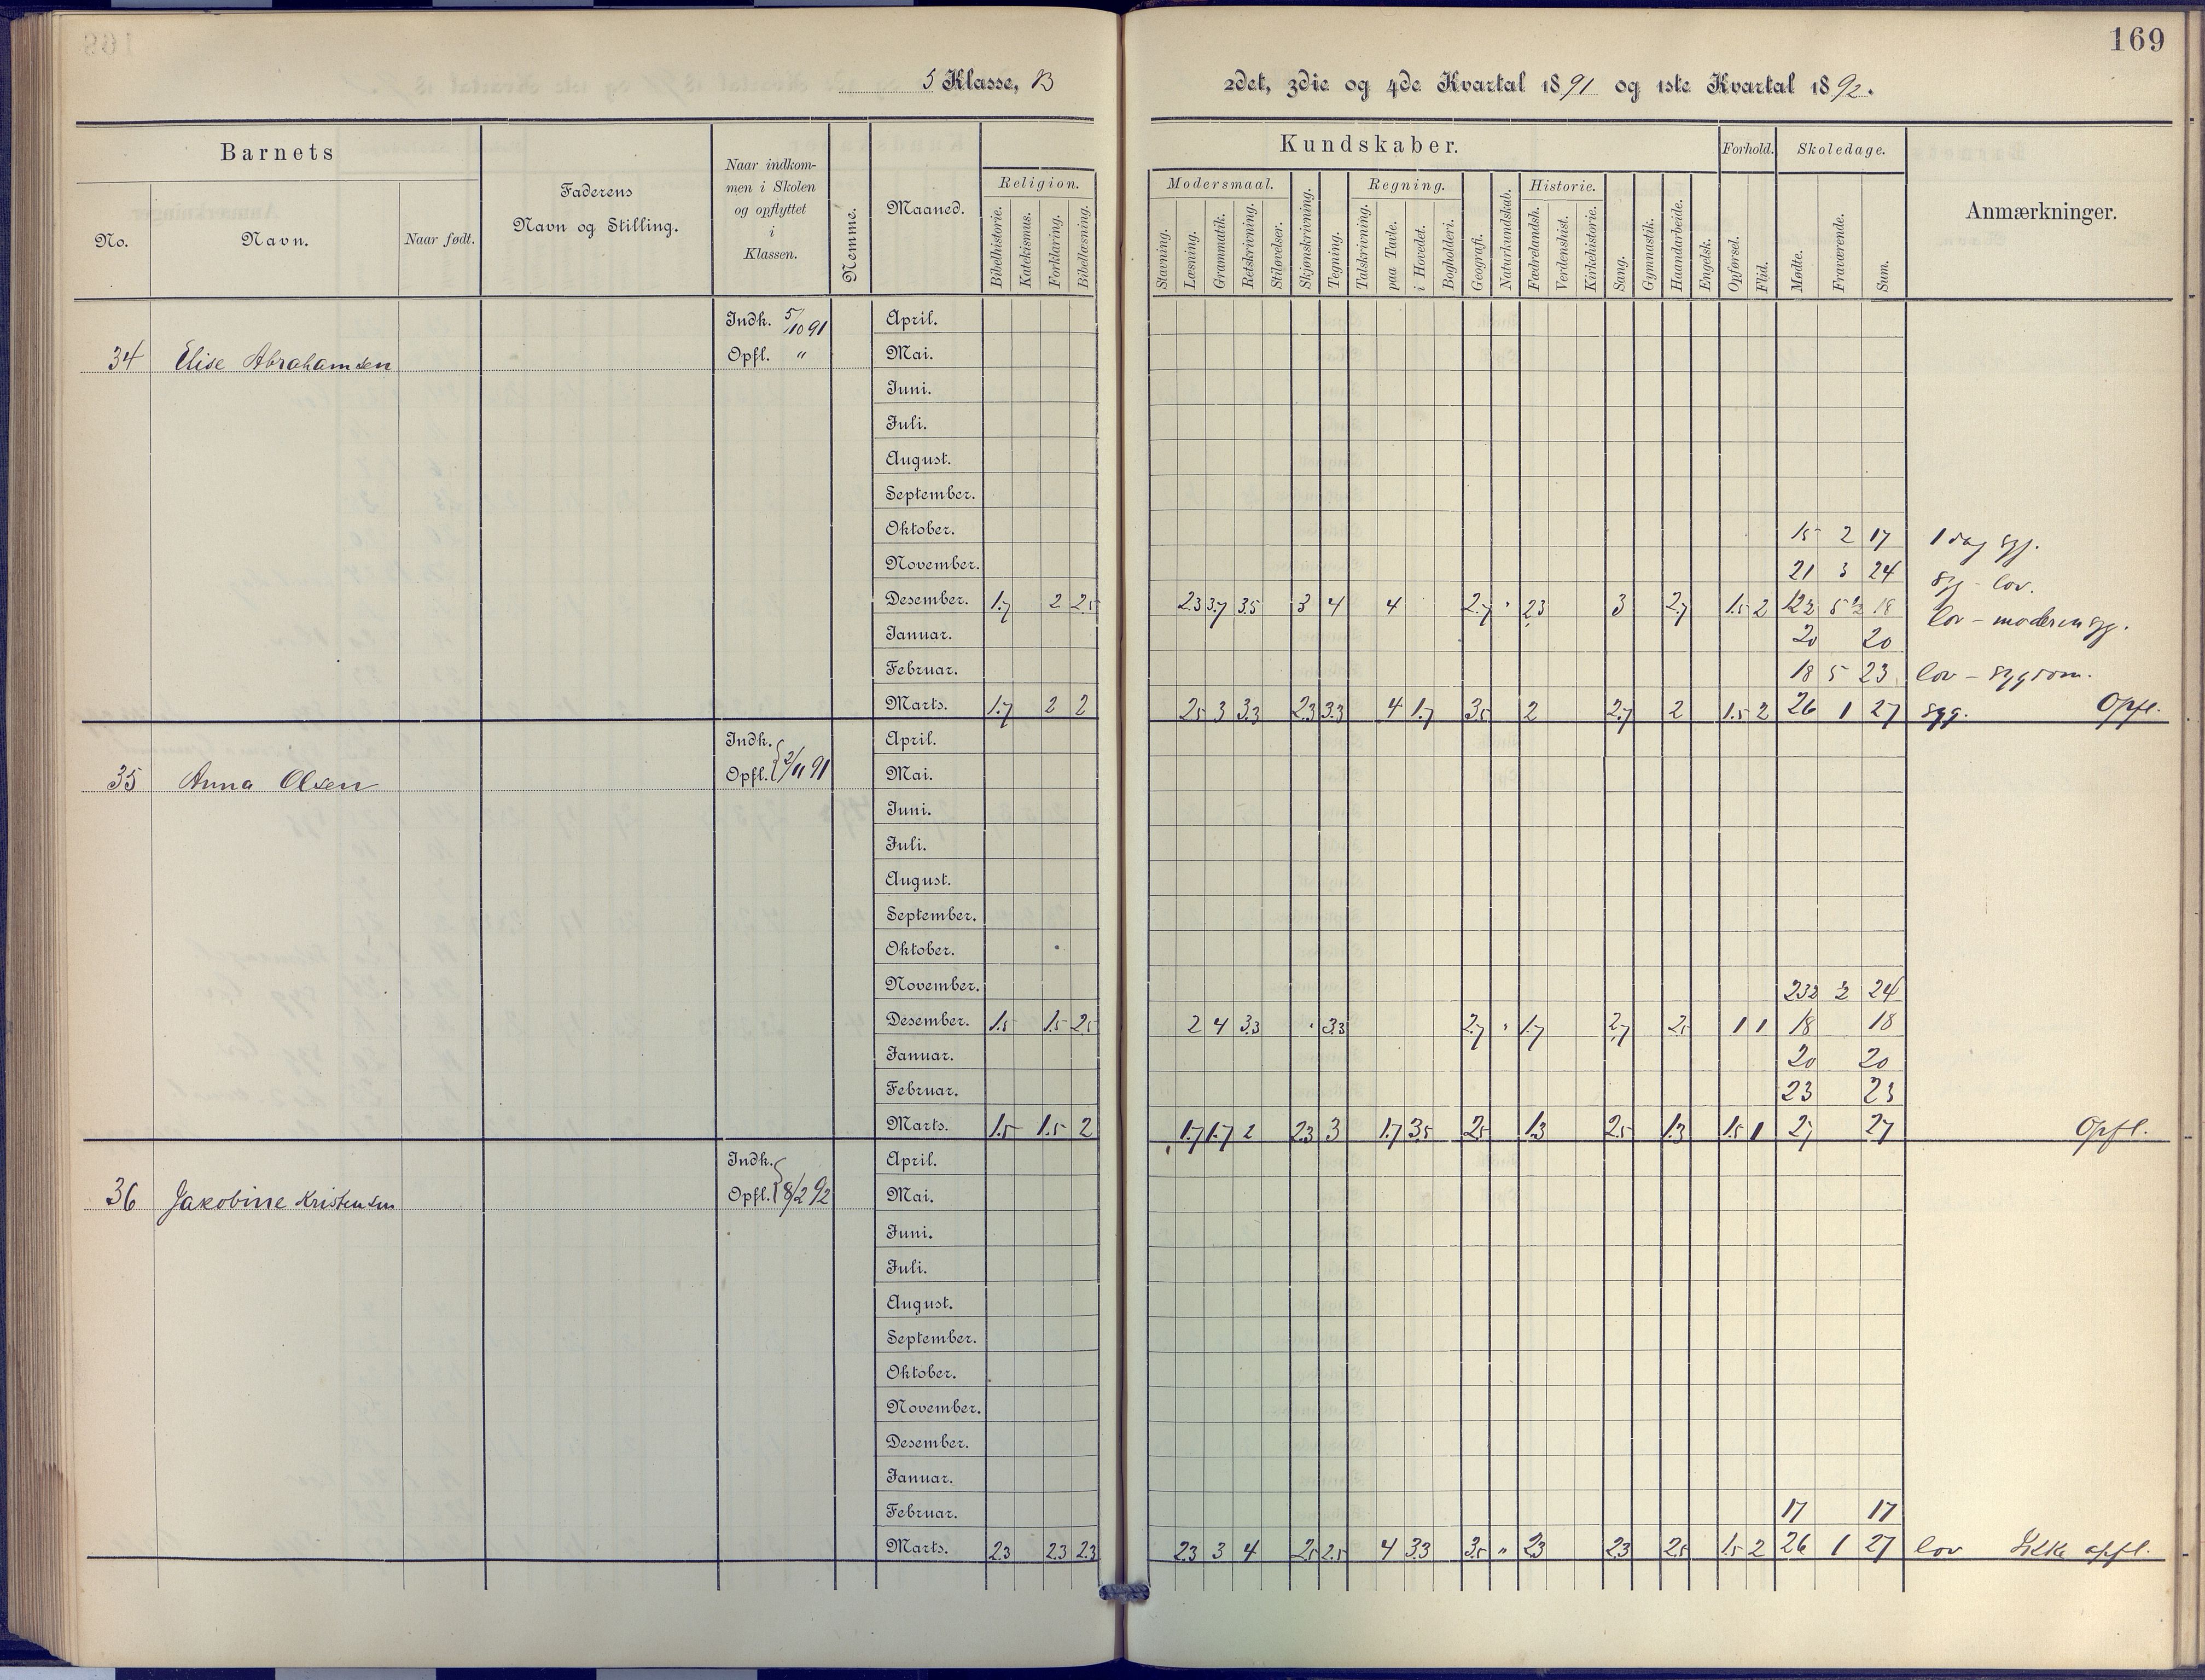 169
5 Klasse, B
2det, 3die og 4de Kvartal 1891 og 1ste Kvartal 1892.
Barnets
No.
Navn.
Naar født.
Faderens
Navn og Stilling.
Naar indkom-
men i Skolen
og opflyttet
i
Klassen.
Nemme.
Maaned.
Kundskaber.
Religion.
Bibelhistorie.
Katekismus.
Forklaring.
Bibellæsning.
Modersmaal.
Stavning.
Læsning.
Grammatik.
Retskrivning.
Stiløvelser.
Skjønskrivning.
Tegning.
Regning.
Talskrivning.
paa Tavle.
i Hovedet.
Bogholderi.
Geografi.
Naturkundskab.
Historie.
Fædrelandsh.
Verdenshist.
Kirkehistorie.
Sang.
Gymnastik.
Haandarbeide.
Engelsk.
Forhold.
Opførsel.
Flid.
Skoledage.
Mødte.
Fraværende.
Sum.
Anmærkninger.
34 Elise Abrahamsen
Indk. 5/10 91
Opfl. "
April.
Mai.
Juni.
Juli.
August.
September.
Oktober. 15 2 17 1 dag syg.
November. 21 3 24 syg - lov.
Desember. 1.7 2 2.5 2.3 3.7 3.5 3 4 4 2.7 " 2.3 3 2.7 1.5 2 12½ 5½ 18 lov - moderen syg.
Januar. 20 20
Februar. 18 5 23 lov - sygdom.
Marts. 1.7 2 2 2.5 3 3.3 2.3 3.3 4 1.7 3.5 2 2.7 2 1.5 2 26 1 27 syg. Opfl.
35 Anna Olsen
Indk.
Opfl. 2/11 91
April.
Mai.
Juni.
Juli.
August.
September.
Oktober.
November. 23½ ½ 24
Desember. 1.5 1.5 2.5 2 4 3.3 " 3.3 2.7 " 1.7 2.7 2.5 1 1 18 18
Januar. 20 20
Februar. 23 23
Marts. 1.5 1.5 2 1.7 1.7 2 2.3 3 1.7 3.5 2.5 1.3 2.5 1.3 1.5 1 27 27 Opfl.
36 Jakobine Kristensen
Indk.
Opfl. 8/2 92
April.
Mai.
Juni.
Juli.
August.
September.
Oktober.
November.
Desember.
Januar.
Februar. 17 17
Marts. 2.3 2.3 2.3 2.3 3 4 2.5 2.5 4 3.3 3.5 " 2.3 2.3 2.5 1.5 2 26 1 27 lov Ikke opfl.